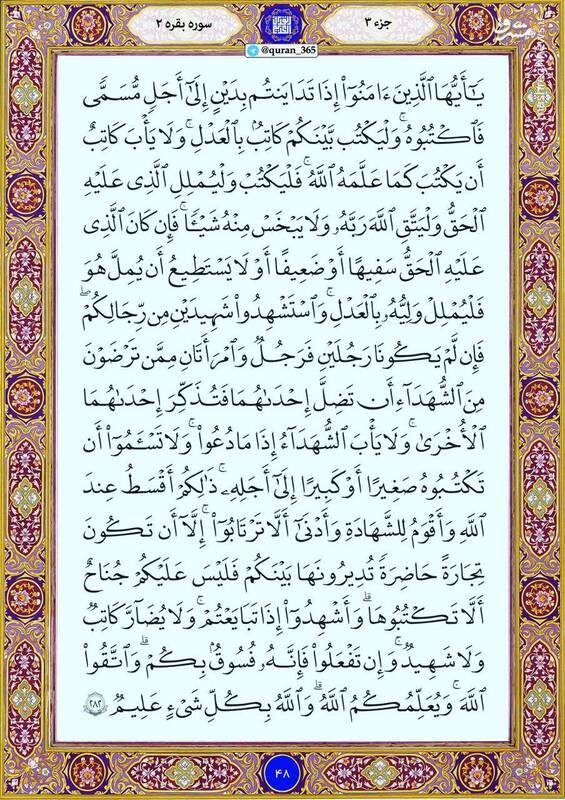 جزء ۳
سوره بقره ۲
@quran_365
يَـٰٓأَيُّهَا ٱلَّذِينَ ءَامَنُوٓا۟ إِذَا تَدَايَنتُم بِدَيْنٍ إِلَىٰٓ أَجَلٍ مُّسَمًّى
فَٱكْتُبُوهُ ۚ وَلْيَكْتُب بَّيْنَكُمْ كَاتِبٌۢ بِٱلْعَدْلِ ۚ وَلَا يَأْبَ كَاتِبٌ
أَن يَكْتُبَ كَمَا عَلَّمَهُ ٱللَّهُ ۚ فَلْيَكْتُبْ وَلْيُمْلِلِ ٱلَّذِى عَلَيْهِ
ٱلْحَقُّ وَلْيَتَّقِ ٱللَّهَ رَبَّهُۥ وَلَا يَبْخَسْ مِنْهُ شَيْـًٔا ۚ فَإِن كَانَ ٱلَّذِى
عَلَيْهِ ٱلْحَقُّ سَفِيهًا أَوْ ضَعِيفًا أَوْ لَا يَسْتَطِيعُ أَن يُمِلَّ هُوَ
فَلْيُمْلِلْ وَلِيُّهُۥ بِٱلْعَدْلِ ۚ وَٱسْتَشْهِدُوا۟ شَهِيدَيْنِ مِن رِّجَالِكُمْ ۖ
فَإِن لَّمْ يَكُونَا رَجُلَيْنِ فَرَجُلٌ وَٱمْرَأَتَانِ مِمَّن تَرْضَوْنَ
مِنَ ٱلشُّهَدَآءِ أَن تَضِلَّ إِحْدَىٰهُمَا فَتُذَكِّرَ إِحْدَىٰهُمَا
ٱلْأُخْرَىٰ ۚ وَلَا يَأْبَ ٱلشُّهَدَآءُ إِذَا مَا دُعُوا۟ ۚ وَلَا تَسْـَٔمُوٓا۟ أَن
تَكْتُبُوهُ صَغِيرًا أَوْ كَبِيرًا إِلَىٰٓ أَجَلِهِۦ ۚ ذَٰلِكُمْ أَقْسَطُ عِندَ
ٱللَّهِ وَأَقْوَمُ لِلشَّهَـٰدَةِ وَأَدْنَىٰٓ أَلَّا تَرْتَابُوٓا۟ ۖ إِلَّآ أَن تَكُونَ
تِجَـٰرَةً حَاضِرَةً تُدِيرُونَهَا بَيْنَكُمْ فَلَيْسَ عَلَيْكُمْ جُنَاحٌ
أَلَّا تَكْتُبُوهَا ۗ وَأَشْهِدُوٓا۟ إِذَا تَبَايَعْتُمْ ۚ وَلَا يُضَآرَّ كَاتِبٌ
وَلَا شَهِيدٌ ۚ وَإِن تَفْعَلُوا۟ فَإِنَّهُۥ فُسُوقٌۢ بِكُمْ ۗ وَٱتَّقُوا۟
ٱللَّهَ ۖ وَيُعَلِّمُكُمُ ٱللَّهُ ۗ وَٱللَّهُ بِكُلِّ شَىْءٍ عَلِيمٌ ۝٢٨٢
۴۸